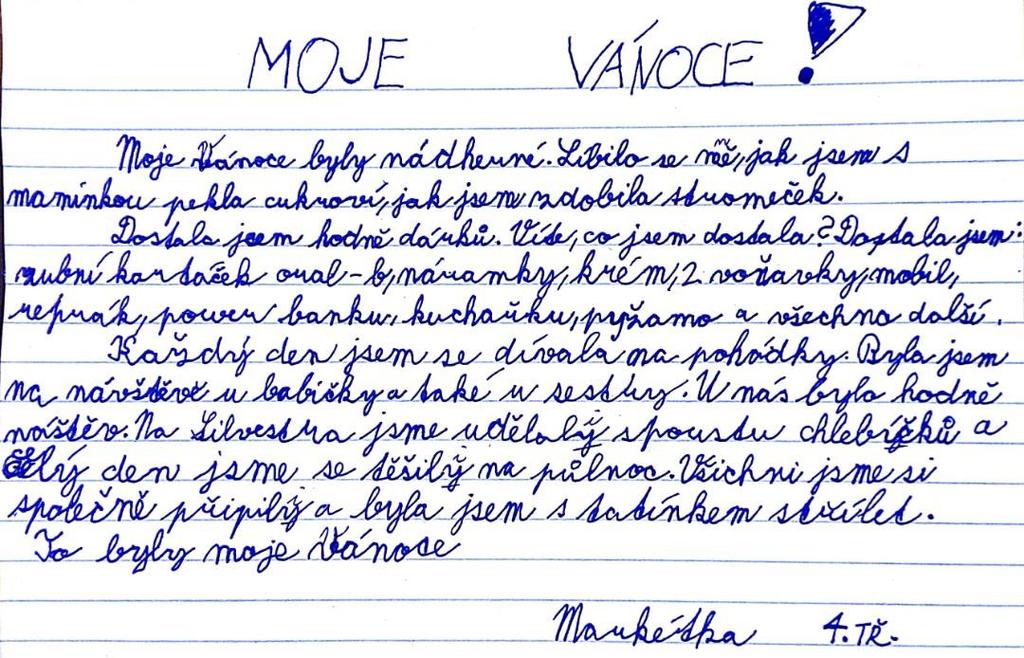 MOJE VÁNOCE!
Moje Vánoce byly nádherné. Líbilo se mě, jak jsem s
maminkou pekla cukroví, jak jsem zdobila stromeček.
Dostala jsem hodně dárků. Víte, co jsem dostala? Dostala jsem:
zubní kartáček oral-b, náramky, krém, 2 voňavky, mobil,
reprák, power banku, kuchařku, pyžamo a všechno další.
Každý den jsem se dívala na pohádky. Byla jsem
na návštěvě u babičky a také u sestry. U nás bylo hodně
náštěv. Na Silvestra jsme udělalý spoustu chlebíčků a
celý den jsme se těšilý na půlnoc. Všichni jsme si
společně připilý a byla jsem s tatínkem střílet.
To byly moje Vánoce
Markétka 4. TŘ.